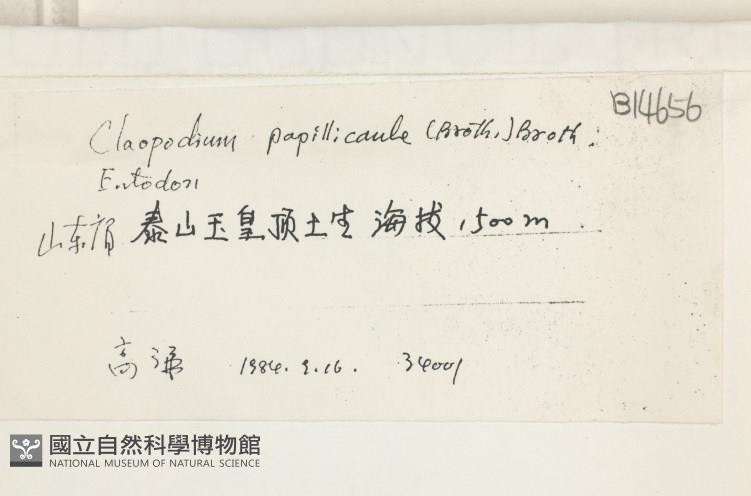 B14656
Claopodium papillicaule (Broth.) Broth.
Entodon
山东省 泰山玉皇顶土生 海拔 1500m
高谦 1984. 9. 16. 34001
國立自然科學博物館
NATIONAL MUSEUM OF NATURAL SCIENCE